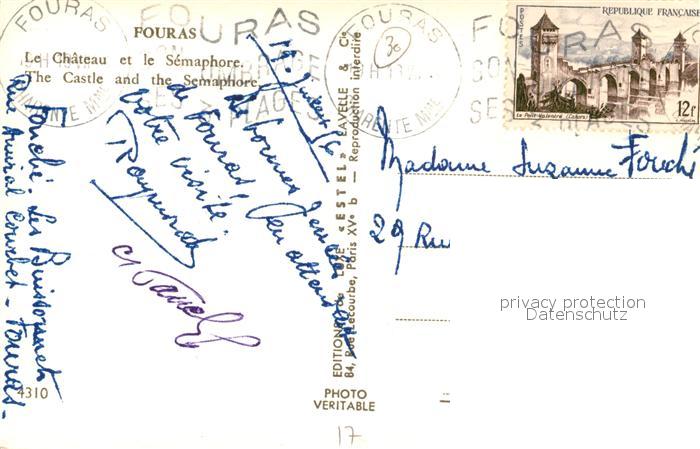 FOURAS
Le Château et le Sémaphore.
The Castle and the Semaphore.
FOURAS
FOURAS
FOURAS
FOURAS
SES PLAGES
CHARENTE MME
CHARENTE MME
30
POSTES
REPUBLIQUE FRANÇAISE
12F
Le Pont Valentré (Cahors)
de bonnes
de Fouras.
En attendant
votre visite.
Raymond
Fouché. Les Buissonnets
Rue Amiral Courbet - Fouras -
EDITIONS de LUXE «ESTEL» LAVELLE & Cie
84, Rue Lecourbe, Paris XVe b — Reproduction interdite
Madame Suzanne Fouché
29 Rue
privacy protection
Datenschutz
4310
PHOTO
VERITABLE
17